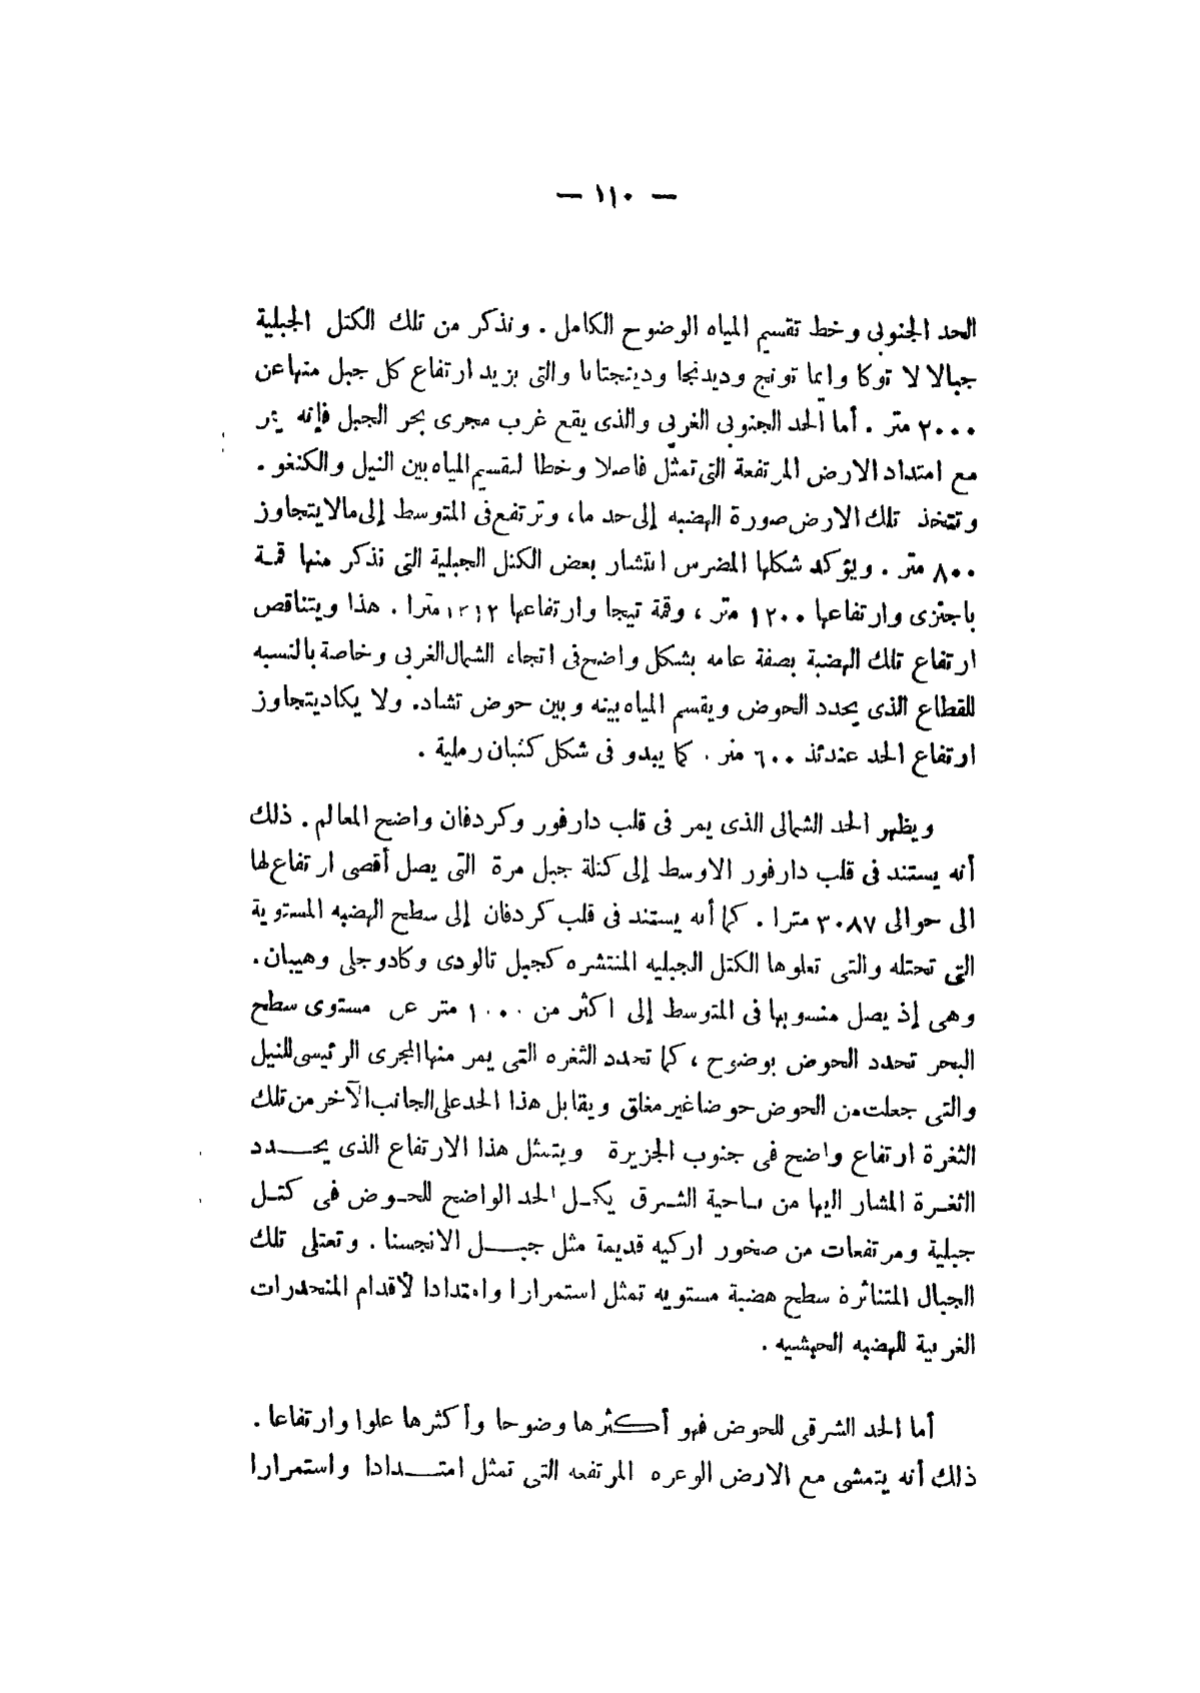 — ١١٠ —
الحد الجنوبى وخط تقسيم المياه الوضوح الكامل . ونذكر من تلك الكتل الجبلية
جبالا لا توكا وايما تونج وديدنجا ودينجتانا والتى يزيد ارتفاع كل جبل منها عن
٢٠٠٠ متر . أما الحد الجنوبى الغربى والذى يقع غرب مجرى بحر الجبل فإنه يمر
مع امتداد الارض المرتفعة التى تمثل فاصلا وخطا لتقسيم المياه بين النيل والكنغو .
وتتخذ تلك الارض صورة الهضبه إلى حد ما، وترتفع فى المتوسط إلى مالا يتجاوز
٨٠٠ متر . ويؤكد شكلها المضرس انتشار بعض الكتل الجبلية التى نذكر منها قمة
باجنزى وارتفاعها ١٢٠٠ متر ، وقمة تيجا وارتفاعها مترا . هذا ويتناقص
ارتفاع تلك الهضبة بصفة عامه بشكل واضح فى اتجاء الشمال الغربى وخاصة بالنسبه
للقطاع الذى يحدد الحوض ويقسم المياه بينه وبين حوض تشاد. ولا يكاد يتجاوز
ارتفاع الحد عندئذ ٦٠٠ متر . كما يبدو فى شكل كثبان رملية .
ويظهر الحد الشمالى الذى يمر فى قلب دارفور وكردفان واضح المعالم . ذلك
أنه يستند فى قلب دارفور الاوسط إلى كتلة جبل مرة التى يصل أقصى ارتفاع لها
الى حوالى ٣٠٨٧ مترا . كما أنه يستند فى قلب كردفان إلى سطح الهضبه المستوية
التى تحتله والتى تعلوها الكتل الجبليه المنتشره كجبل تالودى وكادوجلى وهيبان.
وهى إذ يصل منسوبها فى المتوسط إلى اكثر من ١٠٠٠ متر عن مستوى سطح
البحر تحدد الحوض بوضوح ، كما تحدد الثغره التى يمر منها المجرى الرئيسى للنيل
والتى جعلت من الحوض حوضا غير مغلق ويقابل هذا الحد على الجانب الآخر من تلك
الثغرة ارتفاع واضح فى جنوب الجزيرة ويتمثل هذا الارتفاع الذى يحـــدد
الثغـرة المشار اليها من ناحية الشـرق يكمـل الحد الواضح للحـوض فى كتـل
جبلية ومرتفعات من صخور اركيه قديمة مثل جبـــل الانجسنا . وتعتلى تلك
الجبال المتناثرة سطح هضبة مستويه تمثل استمرارا وامتدادا لأقدام المنحدرات
الغربية للهضبه الحبشيه .
أما الحد الشرقى للحوض فهو أكثرها وضوحا وأكثرها علوا وارتفاعا .
ذلك أنه يتمشى مع الارض الوعره المرتفعه التى تمثل امتـــدادا واستمرارا